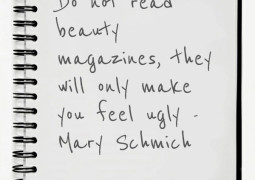 Do not read
beauty
magazines, they
will only make
you feel ugly -
Mary Schmich